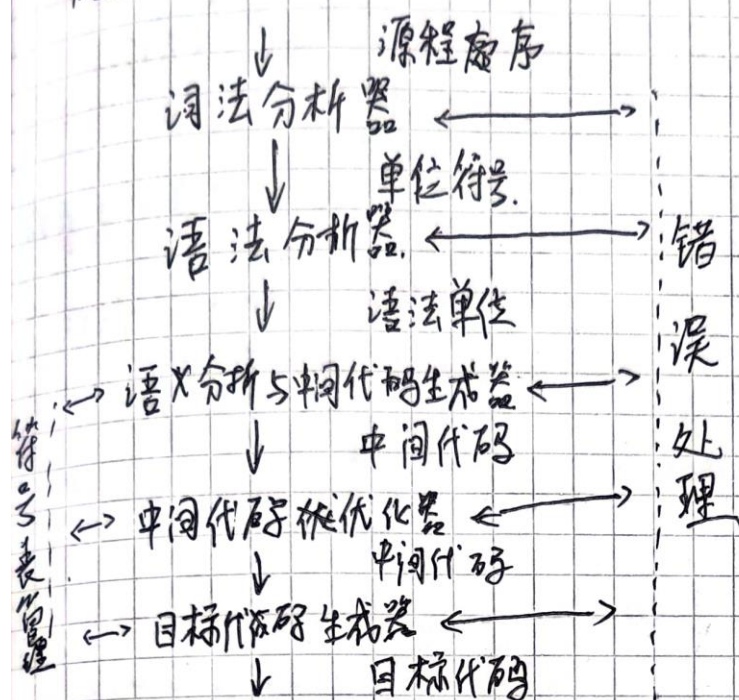 源程序
词法分析器
单位符号.
语法分析器.
语法单位
语义分析与中间代码生成器
中间代码
中间代码优化器
中间代码
目标代码生成器
目标代码
错误处理
符号表管理